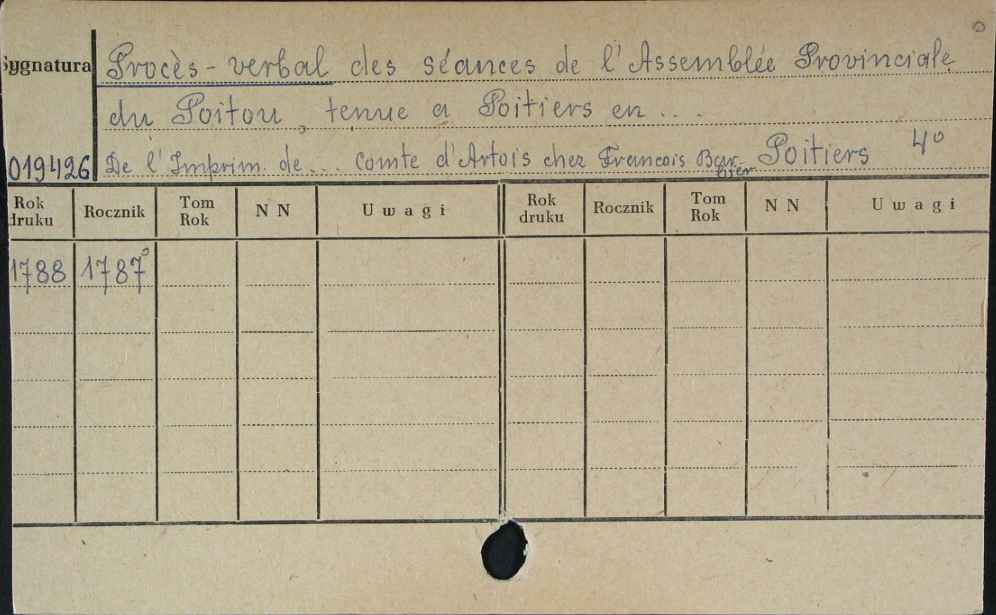 Sygnatura Procès-verbal des séances de l'Assemblée Provinciale
du Poitou, tenue a Poitiers en ...
019426 De l'Imprim. de ... Comte d'Artois chez Francois Barbier Poitiers 4°
Rok druku Rocznik Tom Rok N N Uwagi Rok druku Rocznik Tom Rok N N Uwagi
1788 1787